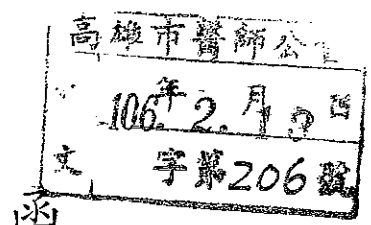 高雄市醫師公
106年2.月13日
文 字第206號
函